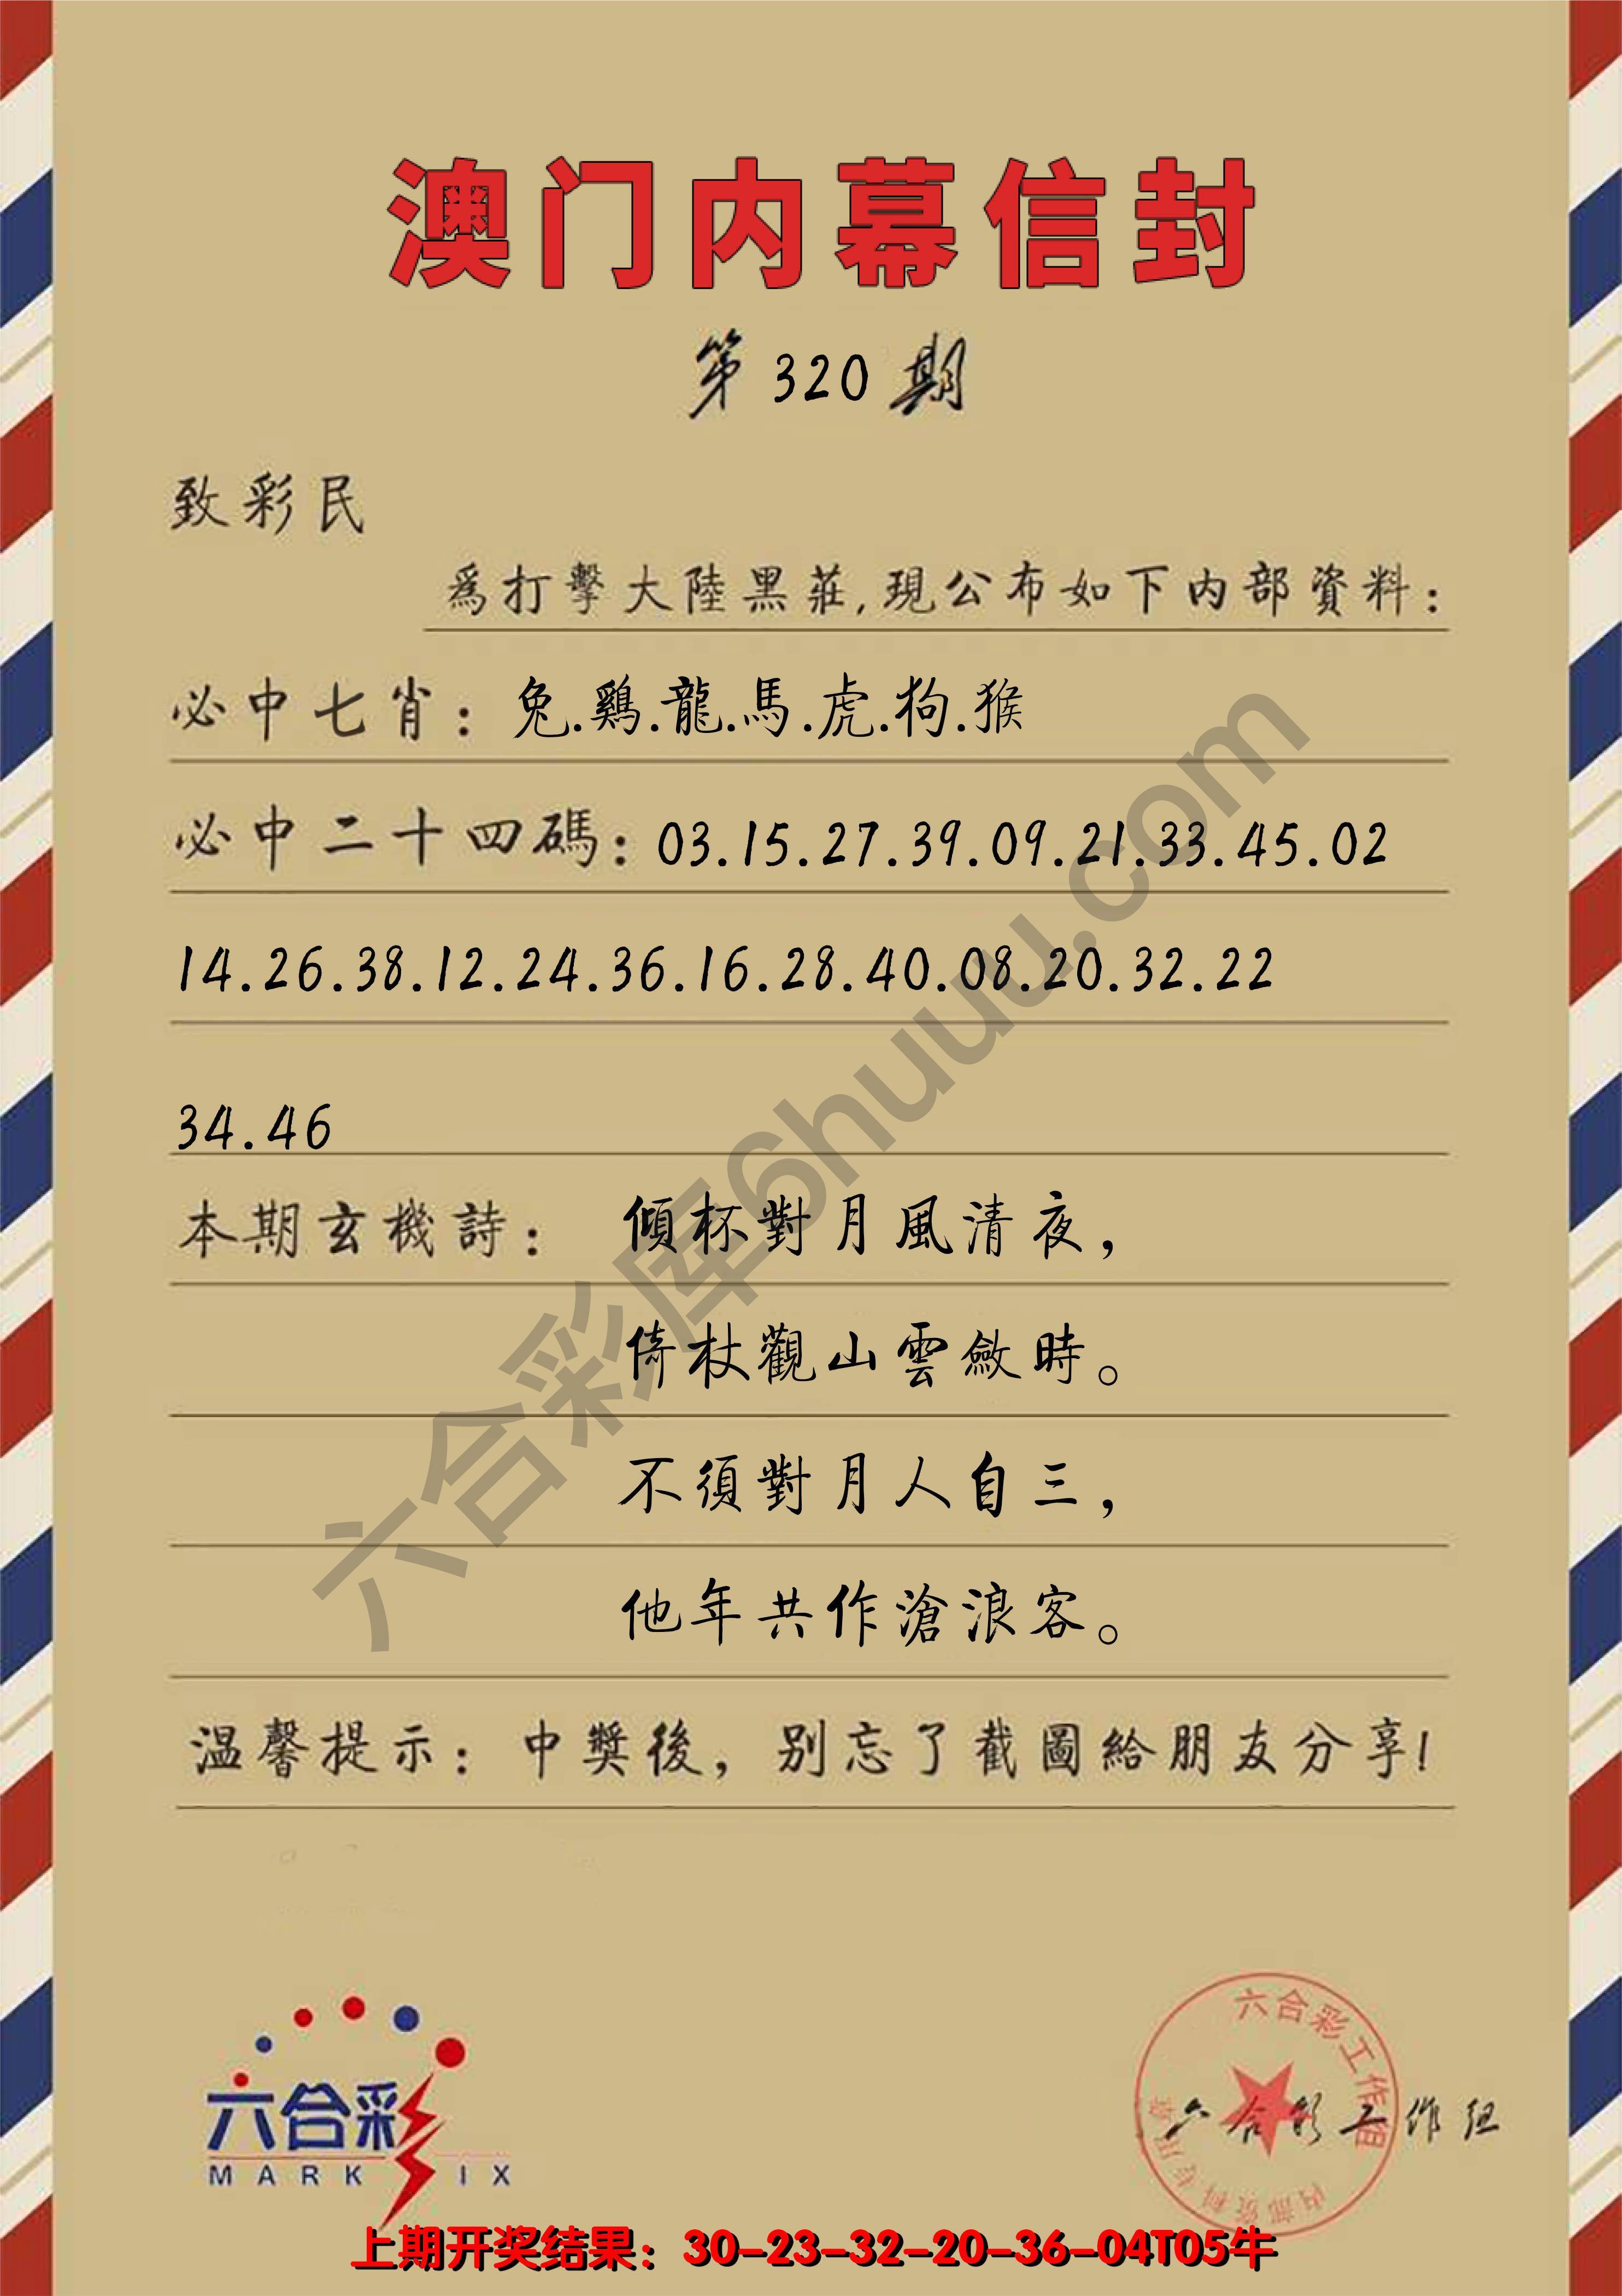 澳门内幕信封
第320期
致彩民
爲打擊大陸黑莊,現公布如下内部資料:
必中七肖: 兔.鷄.龍.馬.虎.狗.猴
必中二十四碼: 03.15.27.39.09.21.33.45.02
14.26.38.12.24.36.16.28.40.08.20.32.22
34.46
本期玄機詩: 傾杯對月風清夜,
倚杖觀山雲斂時。
不須對月人自三,
他年共作滄浪客。
温馨提示: 中獎後, 别忘了截圖給朋友分享!
六合彩库6huuu.com
六合彩
MARK IX
六合彩工作组
内部资料专用章
六合彩工作组
上期开奖结果: 30-23-32-20-36-04T05牛